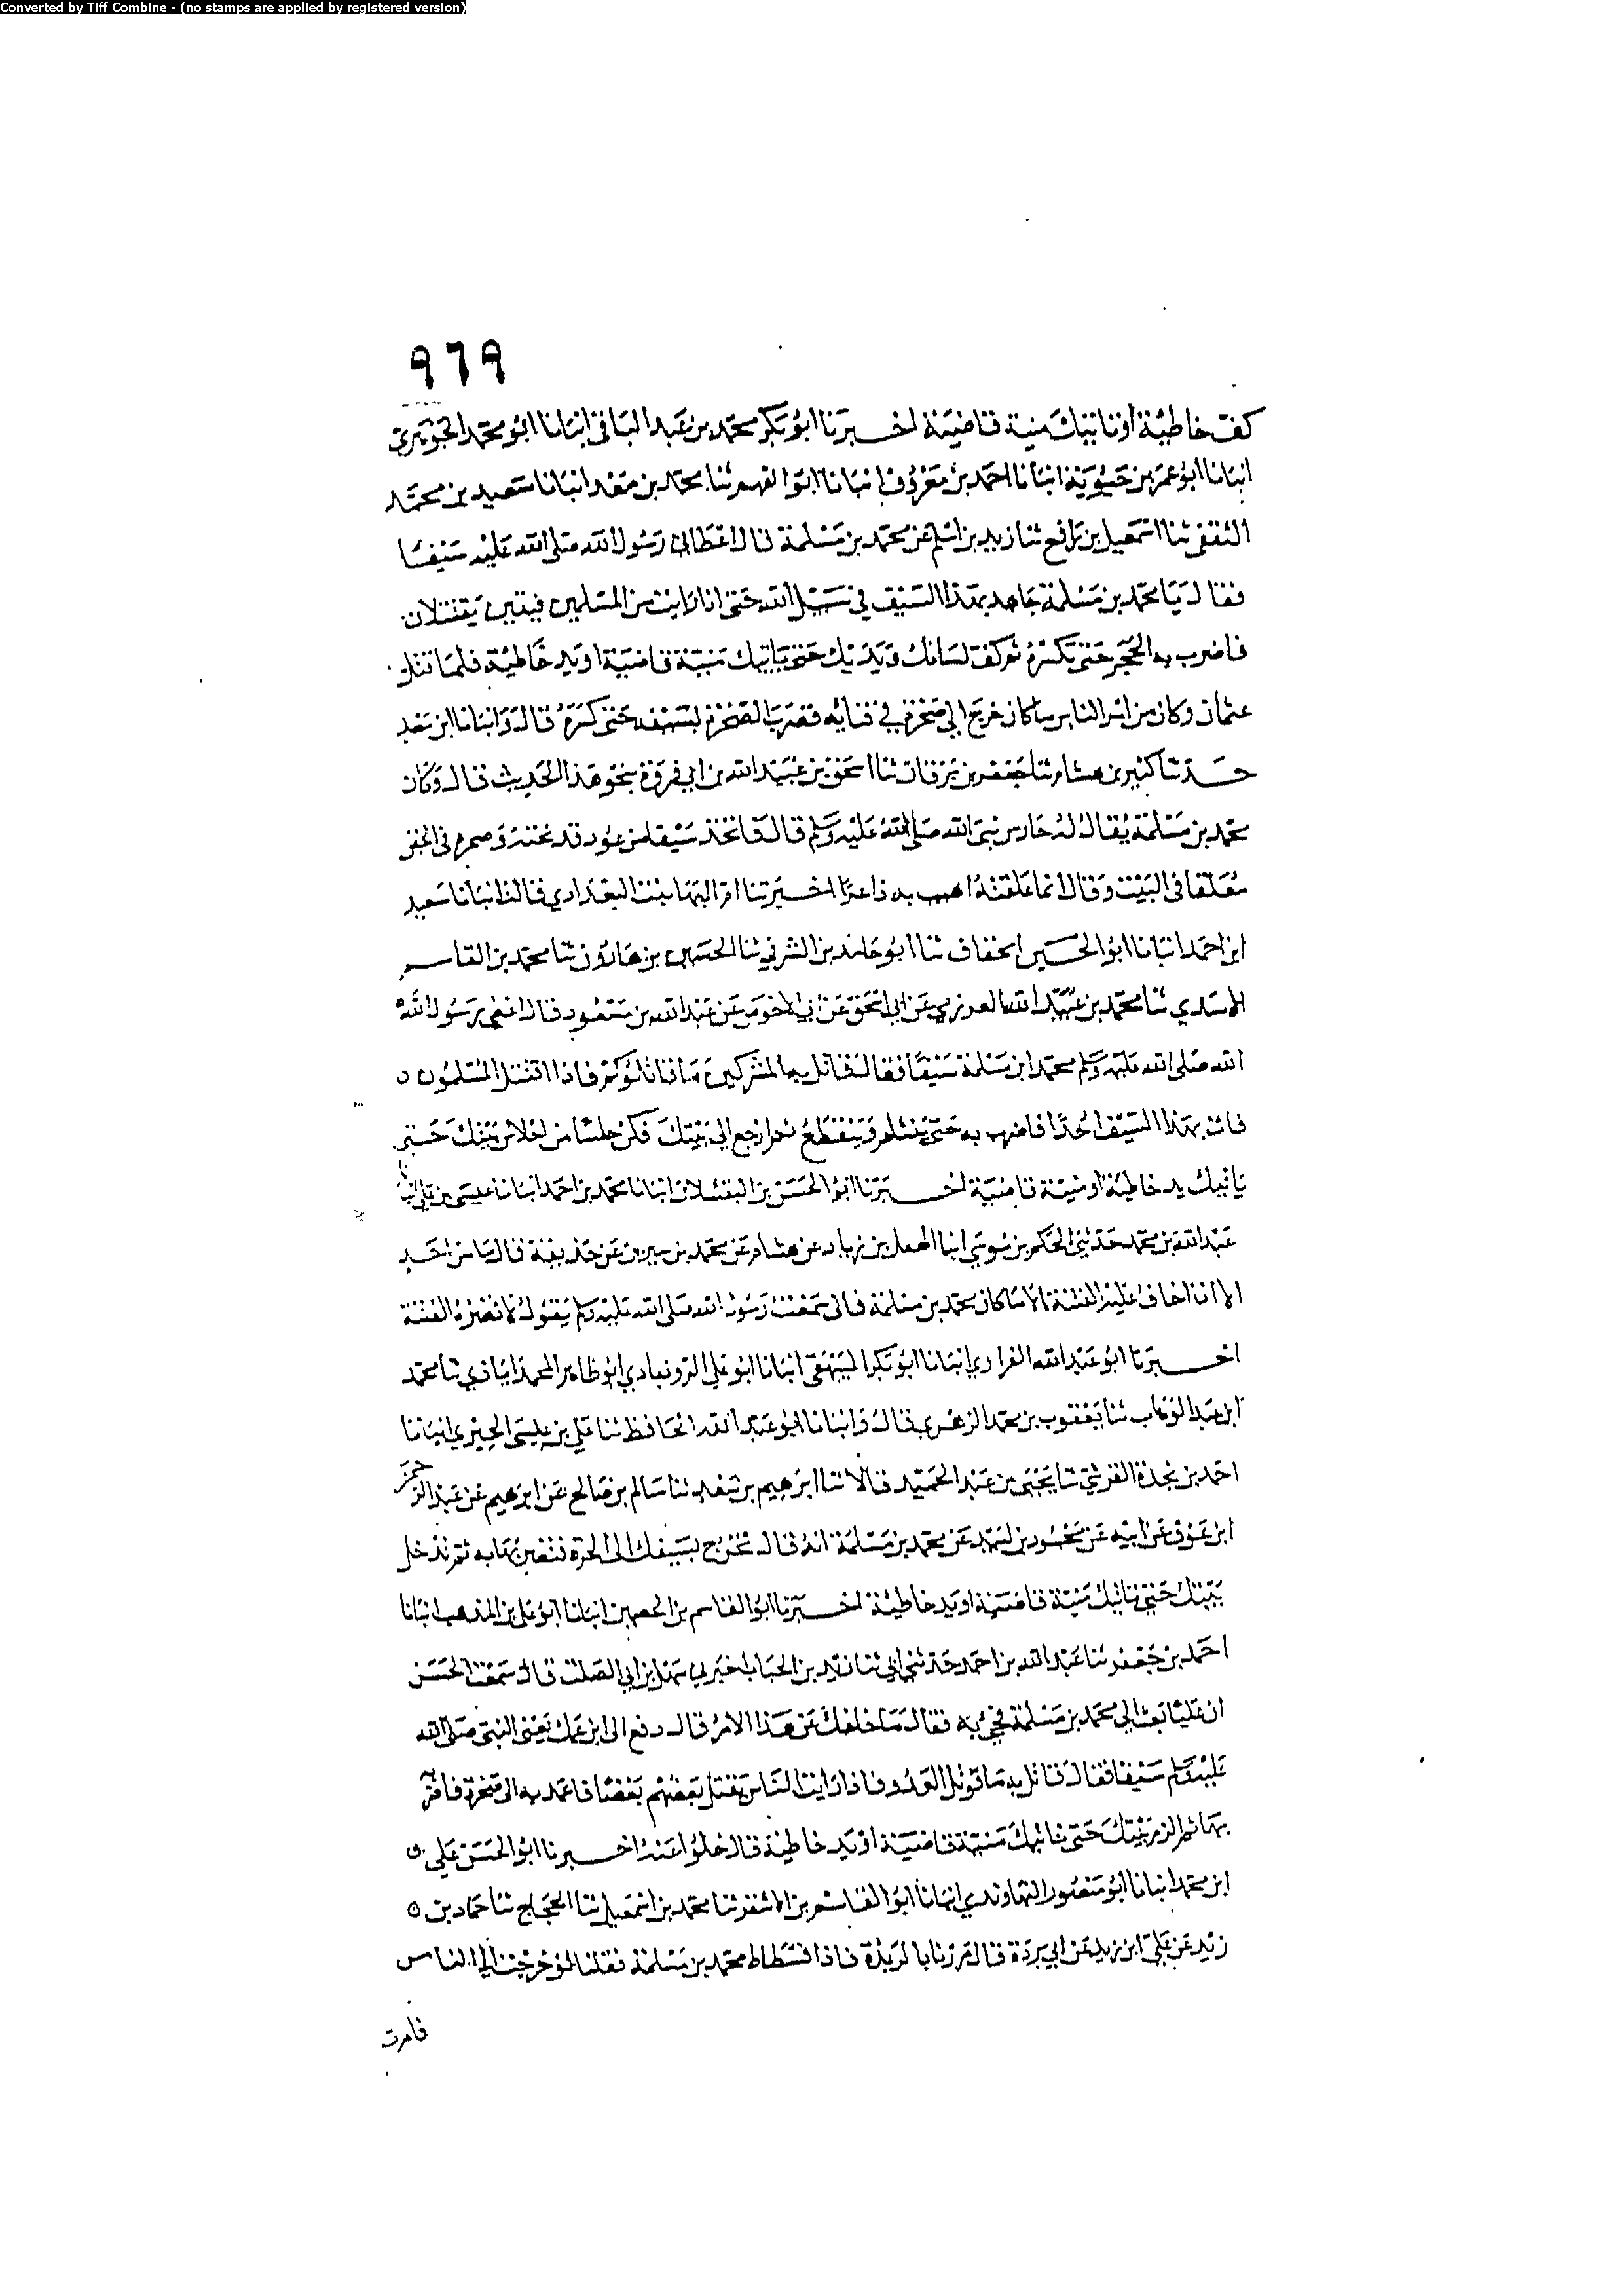 Converted by Tiff Combine - (no stamps are applied by registered version)
٩٦٩
كف خاطئة أو تاتيك منية قاضية اخبرنا ابو بكر محمد بن عبد الباقي انبانا ابو محمد الجوهري
انبانا ابو عمر بن حيوية انبانا احمد بن معروف انبانا ابو الفهم ثنا محمد بن سعد انبانا سعيد بن محمد
الثقفي ثنا اسمعيل بن رافع ثنا زيد بن اسلم عن محمد بن مسلمة قال اعطاني رسول الله صلى الله عليه سيفا
فقال يا محمد بن مسلمة جاهد بهذا السيف في سبيل الله حتى اذا رايت من المسلمين فيتين يقتتلان
فاضرب به الحجر حتى تكسره ثم كف لسانك ويديك حتى ياتيك منية قاضية او يد خاطئة فلما قتل
عثمان وكان من امر الناس ما كان خرج الى صخرة في فنائه فضرب الصخرة بسيفه حتى كسره قال وانبانا ابن سعد
حدثنا كثير بن هشام ثنا جعفر بن برقان ثنا اسحق بن عبيد الله بن ابي فروة بنحو هذا الحديث قال وكان
محمد بن مسلمة يقال له حارس نبي الله صلى الله عليه وسلم قال فاتخذ سيفا من عود قد نحته وصيره في الجفن
معلقا في البيت وقال انما علقته اهيب به ذاعرا اخبرتنا ام البها بنت البغدادي قالت انبانا سعيد
ابن احمد انبانا ابو الحسين الخفاف ثنا ابو حامد بن الشرقي ثنا الحسين بن هارون ثنا محمد بن القاسم
الاسدي ثنا محمد بن عبيد الله العرزمي عن ابي اسحق عن ابي الاحوص عن عبد الله بن مسعود قال اعطى رسول الله
الله صلى الله عليه وسلم محمد ابن مسلمة سيفا فقال قاتل به المشركين ما قاتلوكم فاذا اقتتل المسلمون
فات بهذا السيف احدا فاضرب به حتى ينثلم وينقطع ثم ارجع الى بيتك فكن حلسا من احلاس بيتك حتى
ياتيك يد خاطئة او منية قاضية اخبرنا ابو الحسن بن البقشلان انبانا محمد بن احمد انبانا عيسى بن علي انبا
عبد الله بن محمد حدثني الحكم بن موسى انبا الهقل بن زياد عن هشام عن محمد بن سيرين عن حذيفة قال ما من احد
الا انا اخاف عليه الفتنة الا ما كان محمد بن مسلمة فاني سمعت رسول الله صلى الله عليه وسلم يقول لا تضره الفتنة
اخبرنا ابو عبد الله الفراوي انبانا ابو بكر البيهقي انبانا ابو علي الروذباري ابو طاهر المحمدابادي ثنا محمد
ابن عبد الوهاب ثنا يعقوب بن محمد الزهري قال وانبانا ابو عبد الله الحافظ ثنا علي بن عيسى الحيري انبانا
احمد بن نجدة القرشي ثنا يحيى بن عبد الحميد قالا ثنا ابرهيم بن سعد ثنا سالم بن صالح عن ابرهيم عن عبد الرحمن
ابن عوف عن ابيه عن محمود بن لبيد عن محمد بن مسلمة انه قال تخرج بسيفك الى الحرة فتضربها به ثم تدخل
بيتك حتى تاتيك منية قاضية او يد خاطئة اخبرنا ابو القاسم بن الحصين انبانا ابو علي بن المذهب انبانا
احمد بن جعفر ثنا عبد الله بن احمد حدثني ابي ثنا زيد بن الحباب اخبرني سهل بن ابي الصلت قال سمعت الحسن
ان عليا بعث الى محمد بن مسلمة فجي به فقال ما خلفك عن هذا الامر قال دفع الي ابن عمك يعني النبي صلى الله
عليه وسلم سيفا فقال قاتل به ما قوتل العدو فاذا رايت الناس يقتل بعضهم بعضا فاعمد به الى صخرة فاضربه
بها ثم الزم بيتك حتى تاتيك منية قاضية او يد خاطئة قال خلوا عنه اخبرنا ابو الحسن علي
ابن محمد انبانا ابو منصور النهاوندي انبانا ابو القاسم بن الاشقر ثنا محمد بن اسمعيل ثنا الحجاج ثنا حماد بن
زيد عن علي ابن زيد عن ابي بردة قال مررنا بالربذة فاذا فسطاط محمد بن مسلمة فقلنا لو خرجت الى الناس
فامرت